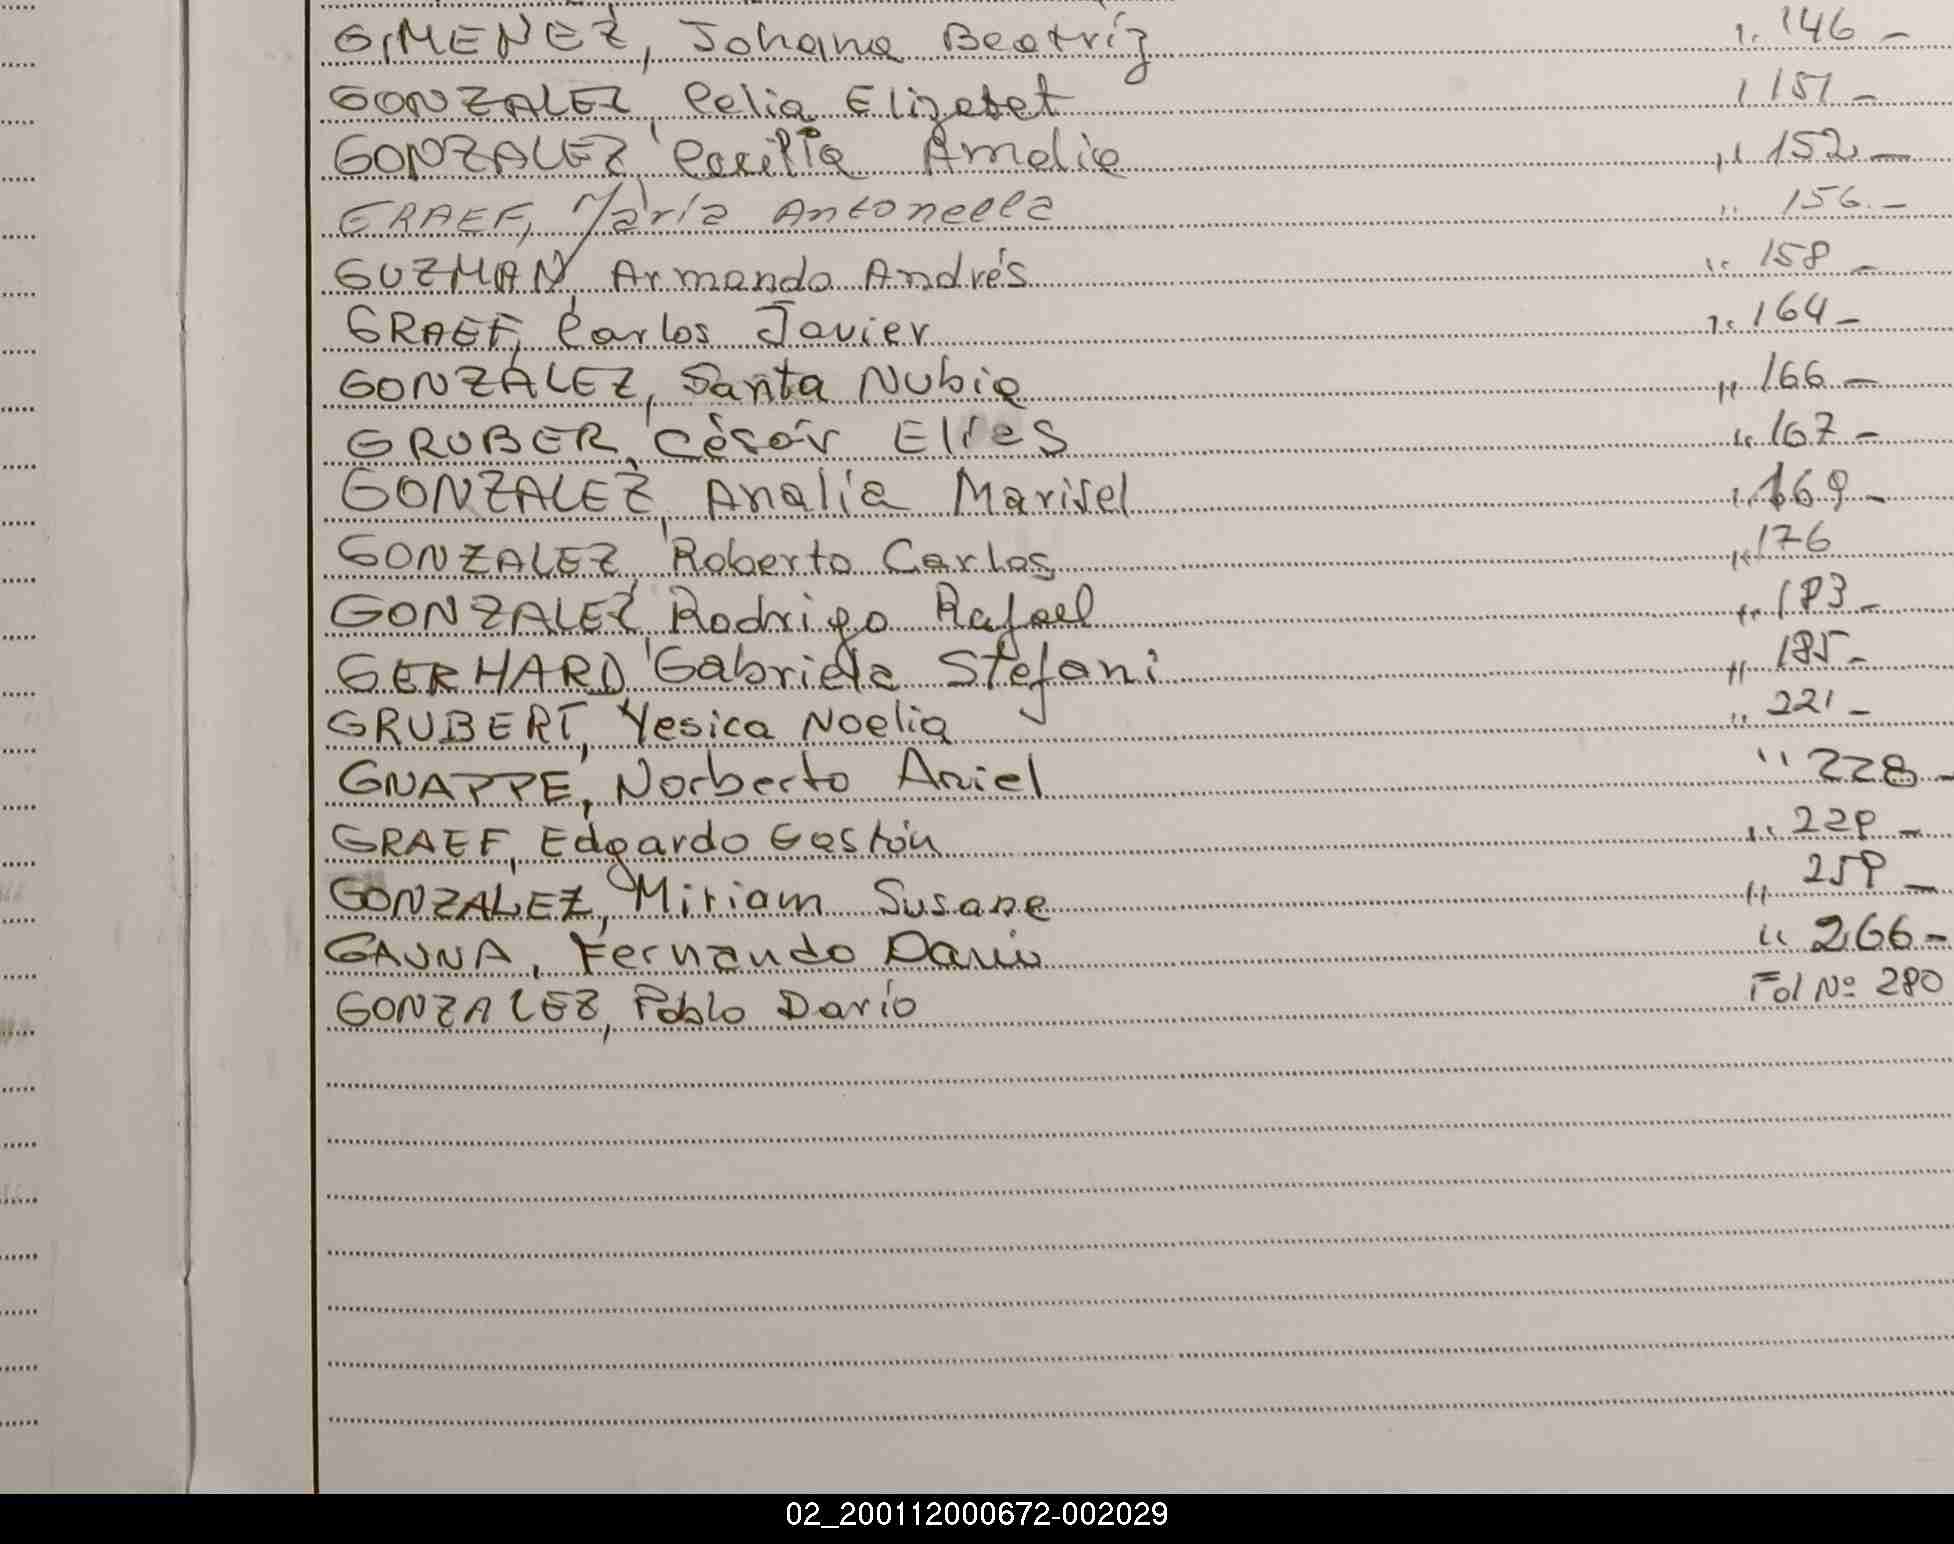 GIMENEZ, Johana Beatriz " 146 -
GONZALEZ, Celia Elizabet " 151 -
GONZALEZ, Cecilia Amelia " 152 -
GRAEF, María Antonella " 156 -
GUZMAN, Armando Andrés " 158 -
GRAEF, Carlos Javier " 164 -
GONZALEZ, Santa Nubia " 166 -
GRUBER, César Elías " 167 -
GONZALEZ, Analía Marisel " 169 -
GONZALEZ, Roberto Carlos " 176
GONZALEZ, Rodrigo Rafael " 183 -
GERHARD, Gabriela Stefani " 185 -
GRUBERT, Yesica Noelia " 221 -
GNAPPE, Norberto Ariel " 228 -
GRAEF, Edgardo Gastón " 229 -
GONZALEZ, Miriam Susana " 259 -
GAUNA, Fernando Dario " 266 -
GONZALEZ, Pablo Darío Fol Nº 280
02_200112000672-002029